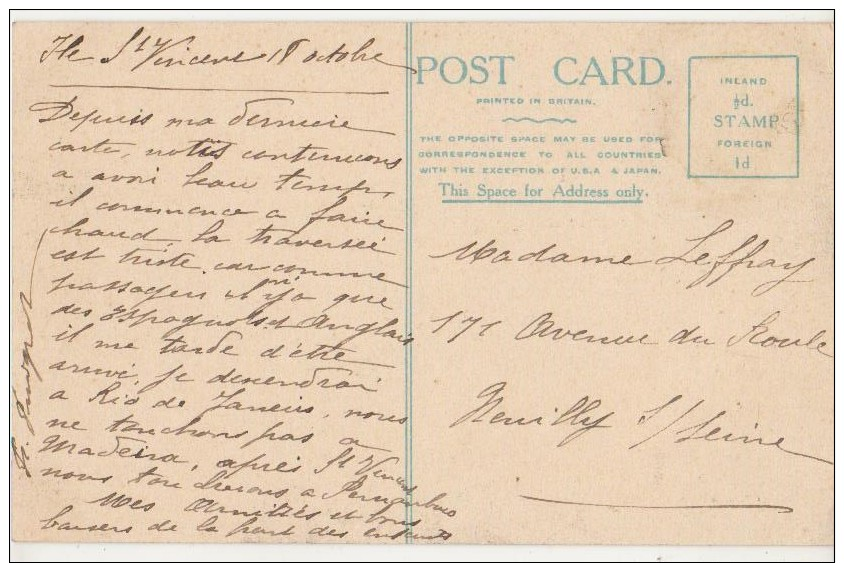 Ile St Vincent 18 octobre
Depuis ma derniere
carte, nous continuons
a avoir beau temps,
il commence a faire
chaud, la traversée
est triste car comme
passagers il n'y a que
des Espagnols et Anglais
il me tarde d'être
arrivé, je descendrai
a Rio de Janeiro, nous
ne touchons pas à
Madeira, après St Vincent
nous toucherons a Pernambuco
Mes Amitiés et bons
baisers de la part des enfants
POST CARD.
PRINTED IN BRITAIN.
THE OPPOSITE SPACE MAY BE USED FOR
CORRESPONDENCE TO ALL COUNTRIES
WITH THE EXCEPTION OF U.S.A & JAPAN.
This Space for Address only.
INLAND
½d.
STAMP
FOREIGN
1d
Madame Leffray
171 Avenue du Roule
Neuilly s/ Seine